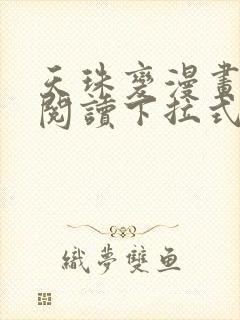 天珠變漫畫
閱讀下拉式
織夢雙魚